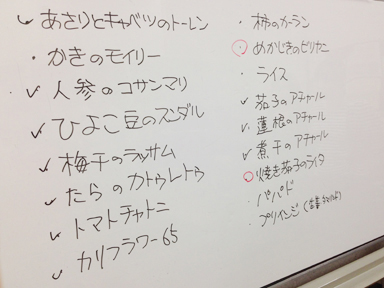 あさりとキャベツのトーレン
かきのモイリー
人参のコサンマリ
ひよこ豆のスンダル
梅干のラッサム
たらのカトゥレトゥ
トマトチャトニ
カリフラワー65
柿のカーラン
めかじきのビリヤニ
ライス
茄子のアチャール
蓮根のアチャール
煮干のアチャール
焼き茄子のライタ
パパド
プリインジ